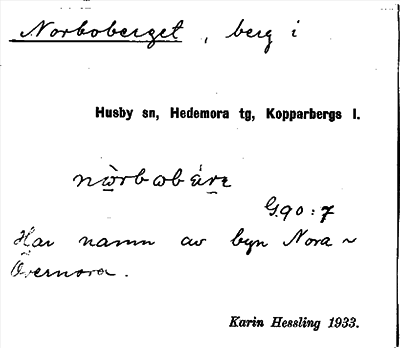 Norboberget, berg i
Husby sn, Hedemora tg, Kopparbergs l.
G. 90 : 7
Har namn av byn Nora ~
Övernora.
Karin Hessling 1933.